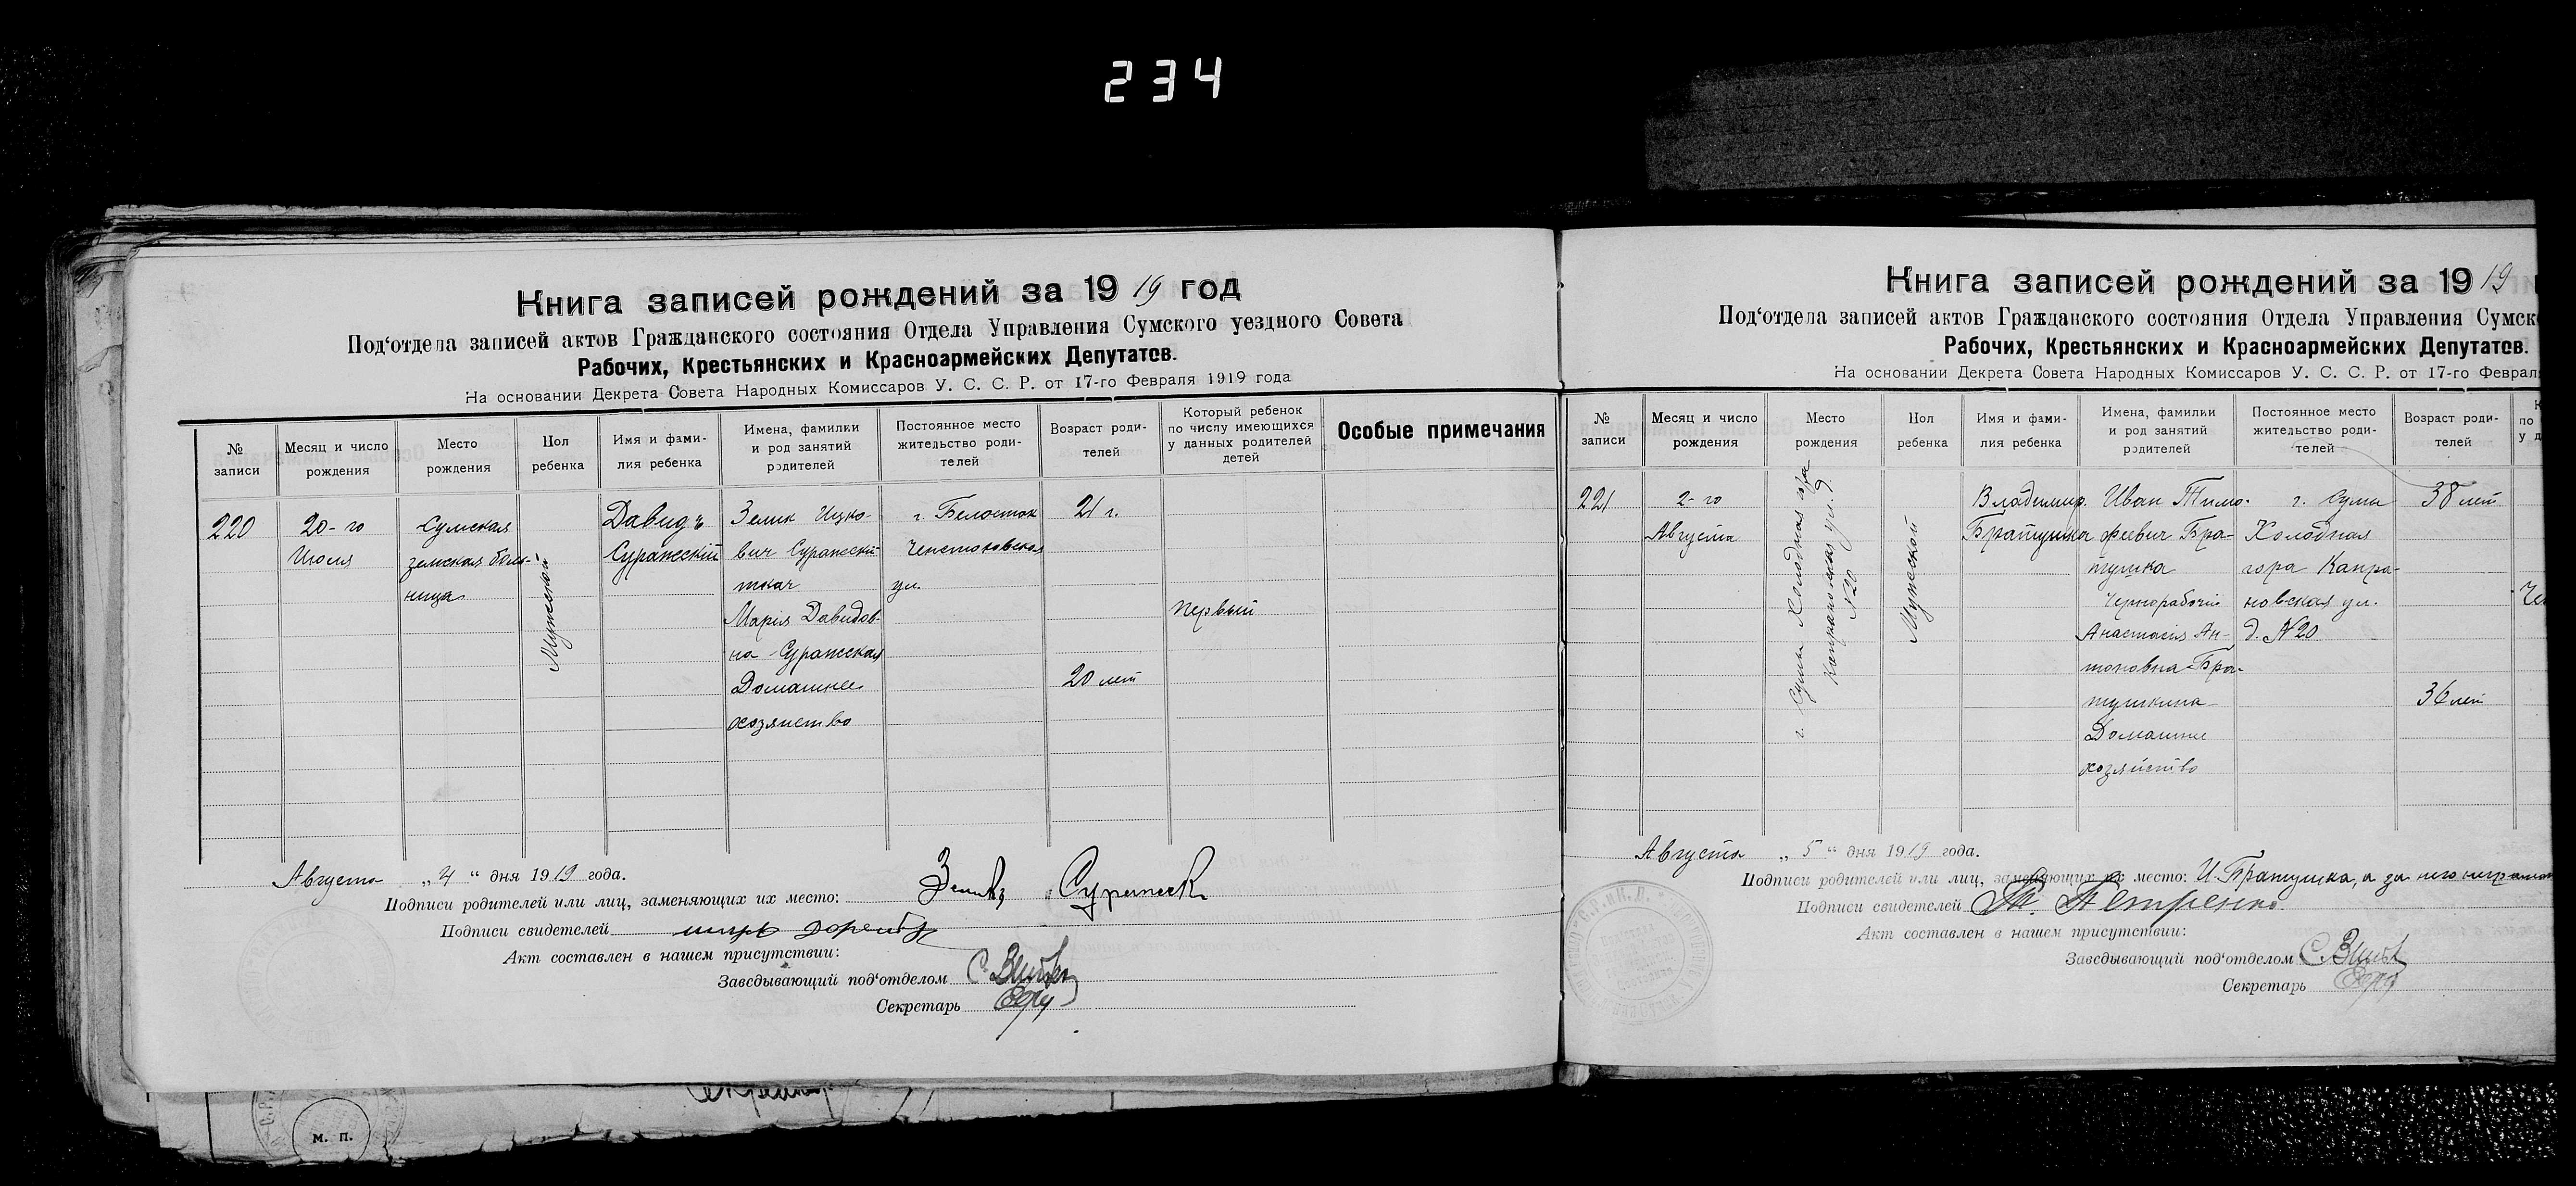 234
Книга записей рождений за 1919 год
Под‘отдела записей актов Гражданского состояния Отдела Управления Сумского уездного Совета
Рабочих, Крестьянских и Красноармейских Депутатов.
На основании Декрета Совета Народных Комиссаров У. С. С. Р. от 17-го Февраля 1919 года
№ записи
Месяц и число рождения
Место рождения
Пол ребенка
Имя и фами-
лия ребенка
Имена, фамилии
и род занятий
родителей
Постоянное место
жительство роди-
телей
Возраст роди-
телей
Который ребенок
по числу имеющихся
у данных родителей
детей
Особые примечания
220
20-го
Июля
Сумская
земская боль-
ница
Мужской
Давидъ
Суражскiй
Зелик Ицко-
вич Суражскiй
ткач
Марiя Давидов-
на Суражская
Домашнее
хозяйство
г. Белосток
Ченстоховская
ул.
21 г.
20 лет
первый
Августа „4“ дня 1919 года.
Подписи родителей или лиц, заменяющих их место:
Подписи свидетелей
Акт составлен в нашем присутствии:
Заведывающий под‘отделом
Секретарь
м. п.
Книга записей рождений за 1919
Под‘отдела записей актов Гражданского состояния Отдела Управления Сумск
Рабочих, Крестьянских и Красноармейских Депутатов.
На основании Декрета Совета Народных Комиссаров У. С. С. Р. от 17-го Феврал
№ записи
Месяц и число
рождения
Место
рождения
Пол
ребенка
Имя и фами-
лия ребенка
Имена, фамилии
и род занятий
родителей
Постоянное место
жительство роди-
телей
Возраст роди-
телей
221
2-го
Августа
г. Сумы Холодная гора
ул. д.
№20
Мужеской
Владимир
Братушка
Иван Тимо-
феевич Бра-
тушка
Чернорабочiй
Анастасiя Ан-
тоновна Бра-
тушкина
Домашнее
хозяйство
г. Сумы
Холодная
гора Капра-
новская ул.
д. №20
38 лет
36 лет
Августа „5“ дня 1919 года.
Подписи родителей или лиц, заменяющих их место: И. Братушка, а за него неграмот
Подписи свидетелей Петренко
Акт составлен в нашем присутствии:
Заведывающий под‘отделом
Секретарь